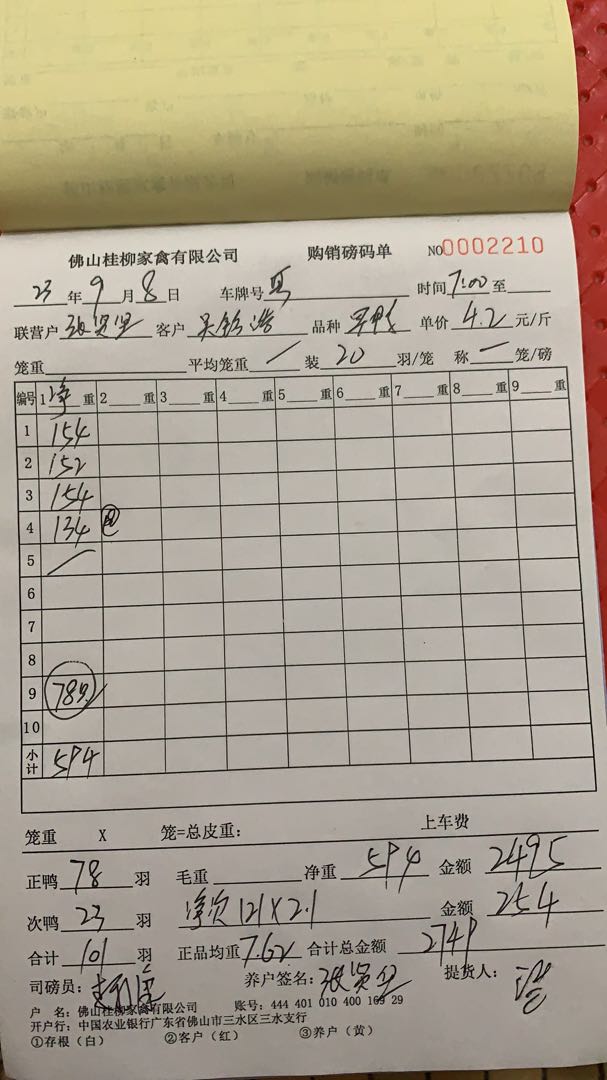 佛山桂柳家禽有限公司 购销磅码单 NO0002210
23年9月8日 车牌号 时间7:00至
联营户 客户 品种 单价4.2元/斤
笼重 平均笼重/装20羽/笼 称一笼/磅
编号 1净重 2重 3重 4重 5重 6重 7重 8重 9重
1 154
2 152
3 154
4 134
5 /
6
7
8
9 78只
10
小计 594
笼重 X 笼=总皮重: 上车费
正鸭78羽 毛重 净重594 金额2495
次鸭23羽 净次121X2.1 金额254
合计101羽 正品均重7.62 合计总金额2749
司磅员: 养户签名: 提货人:
户 名: 佛山桂柳家禽有限公司 账号: 444 401 010 400 169 29
开户行: 中国农业银行广东省佛山市三水区三水支行
①存根(白) ②客户(红) ③养户(黄)